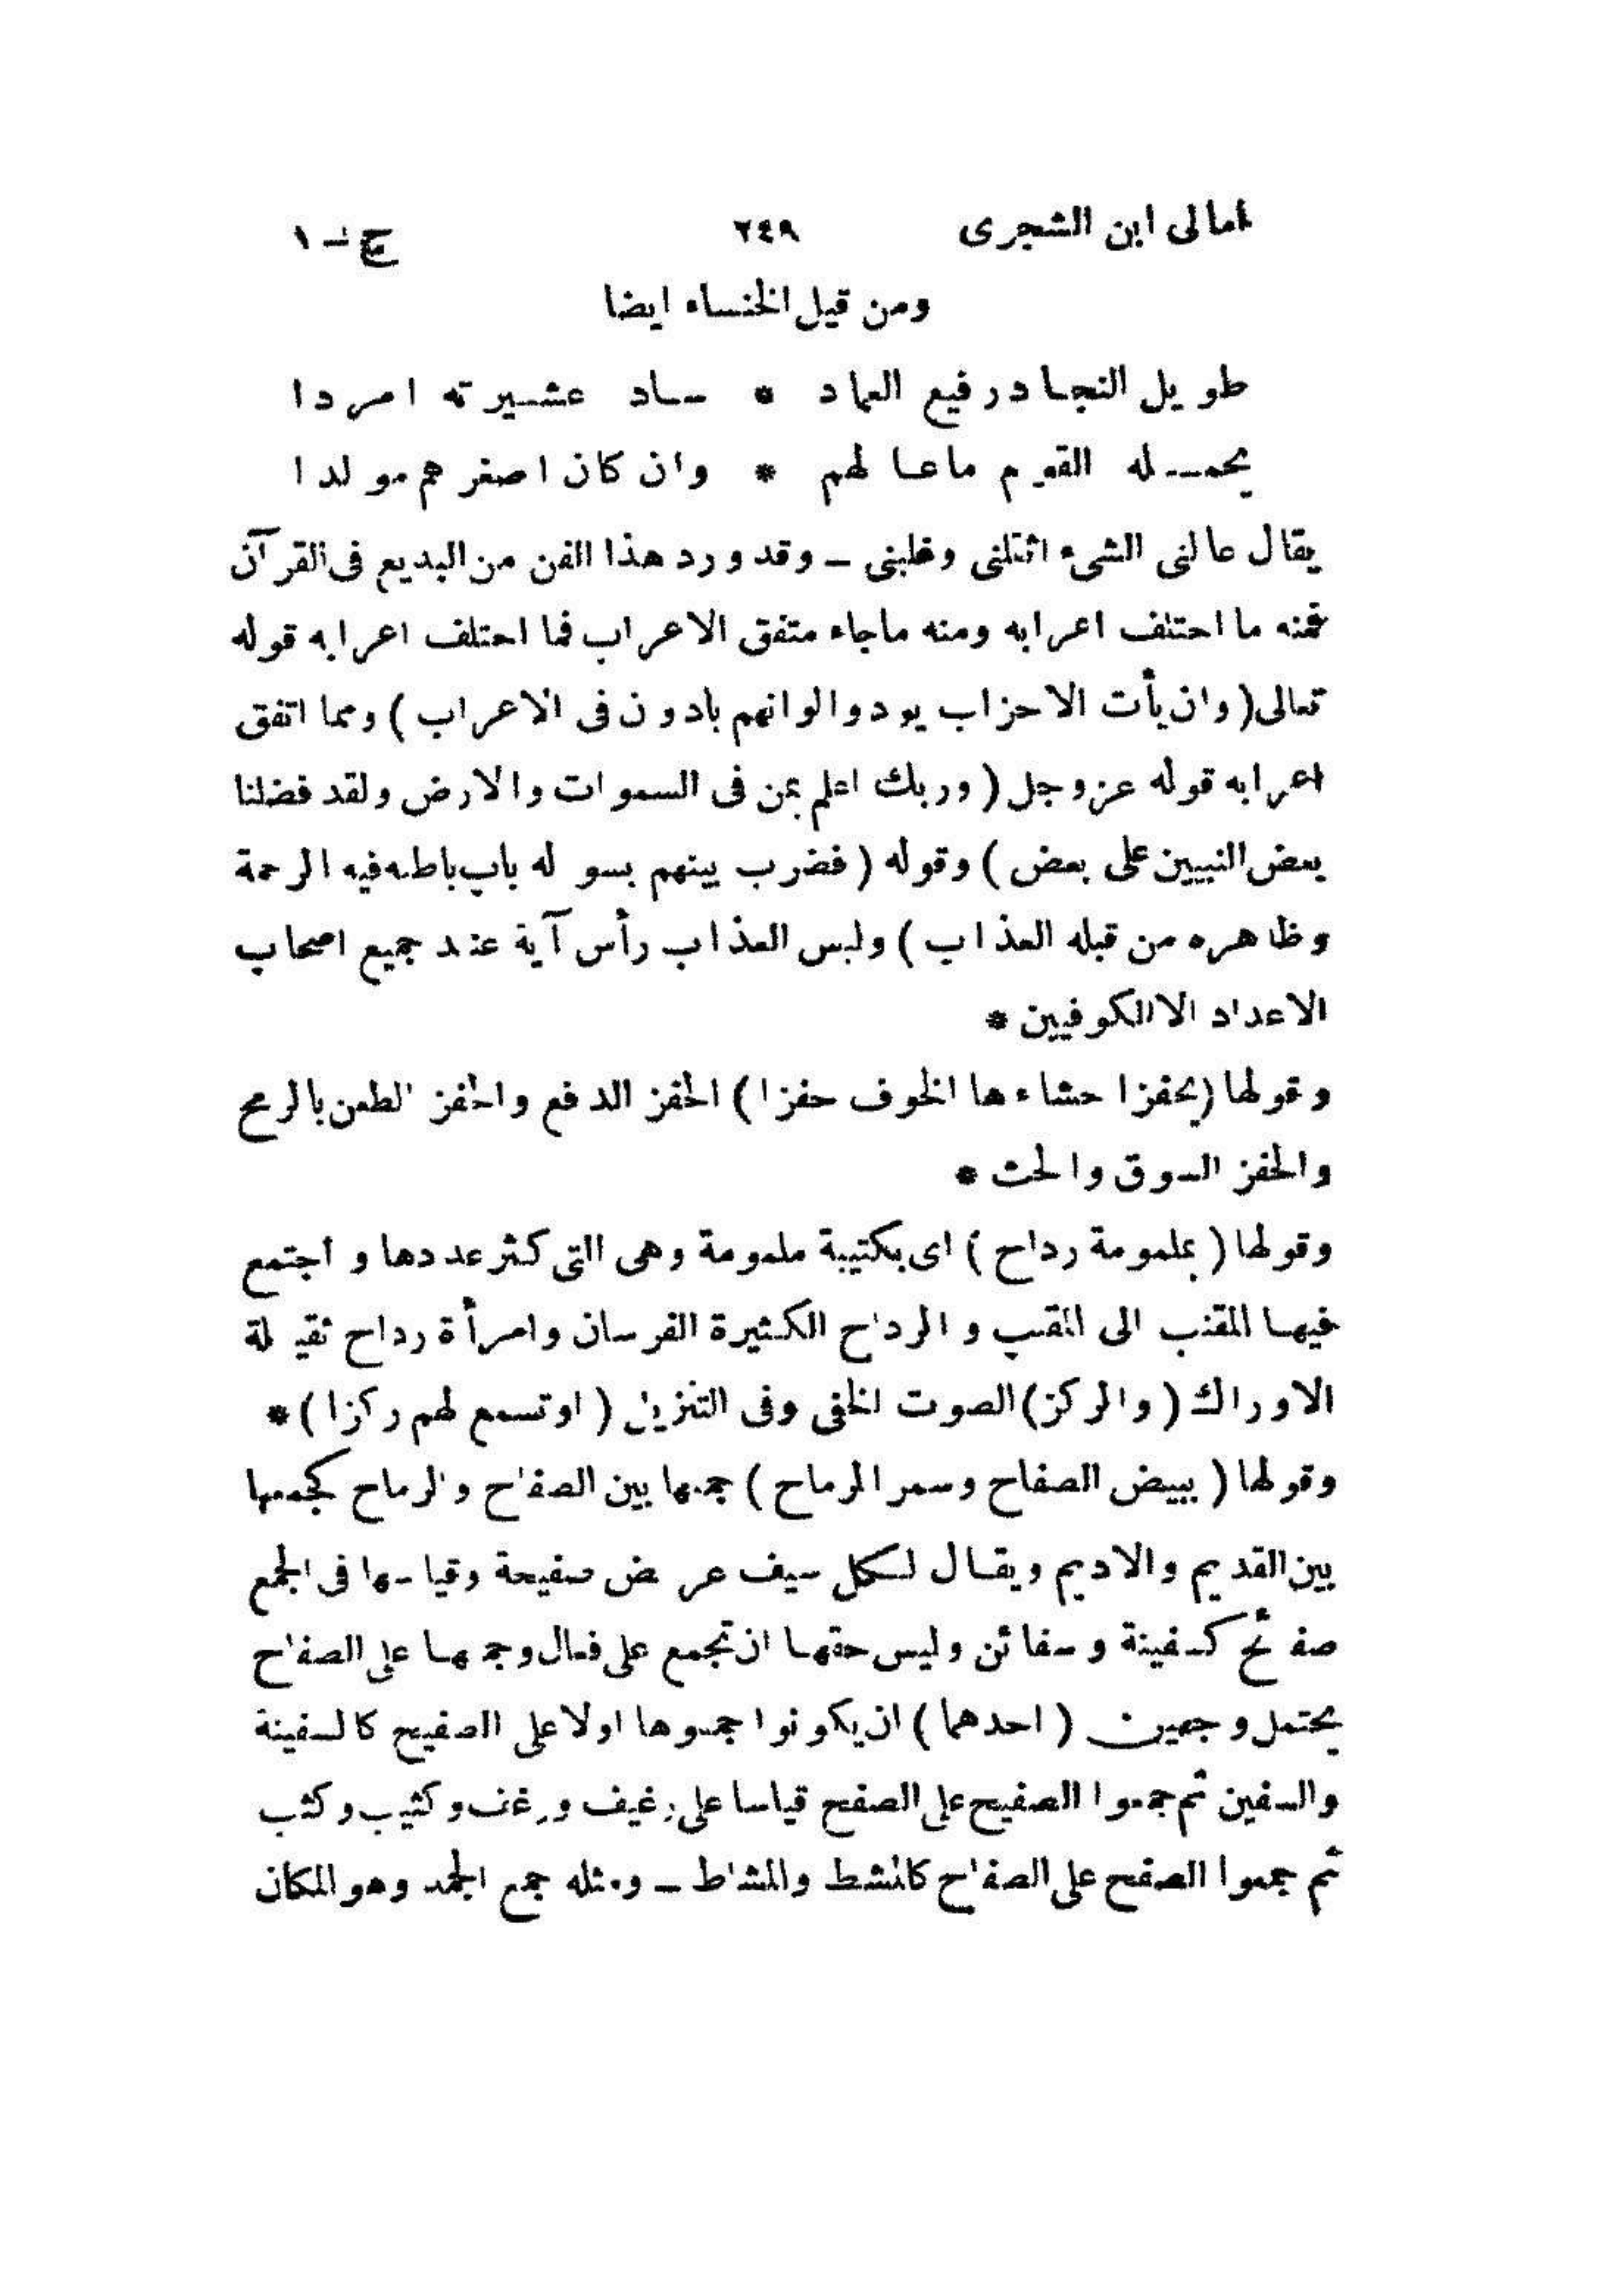 امالى ابن الشجرى ٢٤٩ ج - ١
ومن قيل الخنساء ايضا
طويل النجاد رفيع العماد * ساد عشيرته امردا
يحمله القوم ما عا لهم * وان كان اصغرهم مولدا
يقال عالنى الشىء اثقلنى وغلبنى – وقد ورد هذا الفن من البديع فى القرآن
فمنه ما اختلف اعرابه ومنه ماجاء متفق الاعراب فما اختلف اعرابه قوله
تعالى (وان يأت الاحزاب يودوا لو انهم بادون فى الاعراب) ومما اتفق
اعرابه قوله عز وجل (وربك اعلم بمن فى السموات والارض ولقد فضلنا
بعض النبيين على بعض) وقوله (فضرب بينهم بسور له باب باطنه فيه الرحمة
وظاهره من قبله العذاب) وليس العذاب رأس آية عند جميع اصحاب
الاعداد الا الكوفيين *
وقولها (يحفز احشاءها الخوف حفزا) الحفز الدفع والحفز الطعن بالرمح
والحفز السوق والحث *
وقولها (بملمومة رداح) اى بكتيبة ملمومة وهى التى كثر عددها واجتمع
فيها المقنب الى المقنب و الرداح الكثيرة الفرسان وامرأة رداح ثقيلة
الاوراك (والركز) الصوت الخفى وفى التنزيل (او تسمع لهم ركزا) *
وقولها (ببيض الصفاح وسمر الرماح) جمعها بين الصفاح والرماح كجمعها
بين القديم والاديم ويقال لكل سيف عريض صفيحة وقياسها فى الجمع
صفائح كسفينة وسفائن وليس حقها ان تجمع على فعال وجمعها على الصفاح
يحتمل وجهين (احدهما) ان يكونوا جمعوها اولا على الصفيح كالسفينة
والسفين ثم جمعوا الصفيح على الصفح قياسا على رغيف ورغف وكثيب وكثب
ثم جمعوا الصفح على الصفاح كالمشط والمشاط – ومثله جمع الجمد وهو المكان